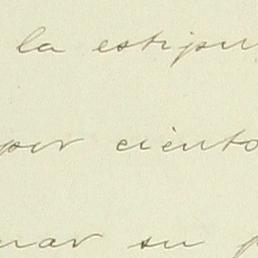 la estipu
por ciento
nar su p